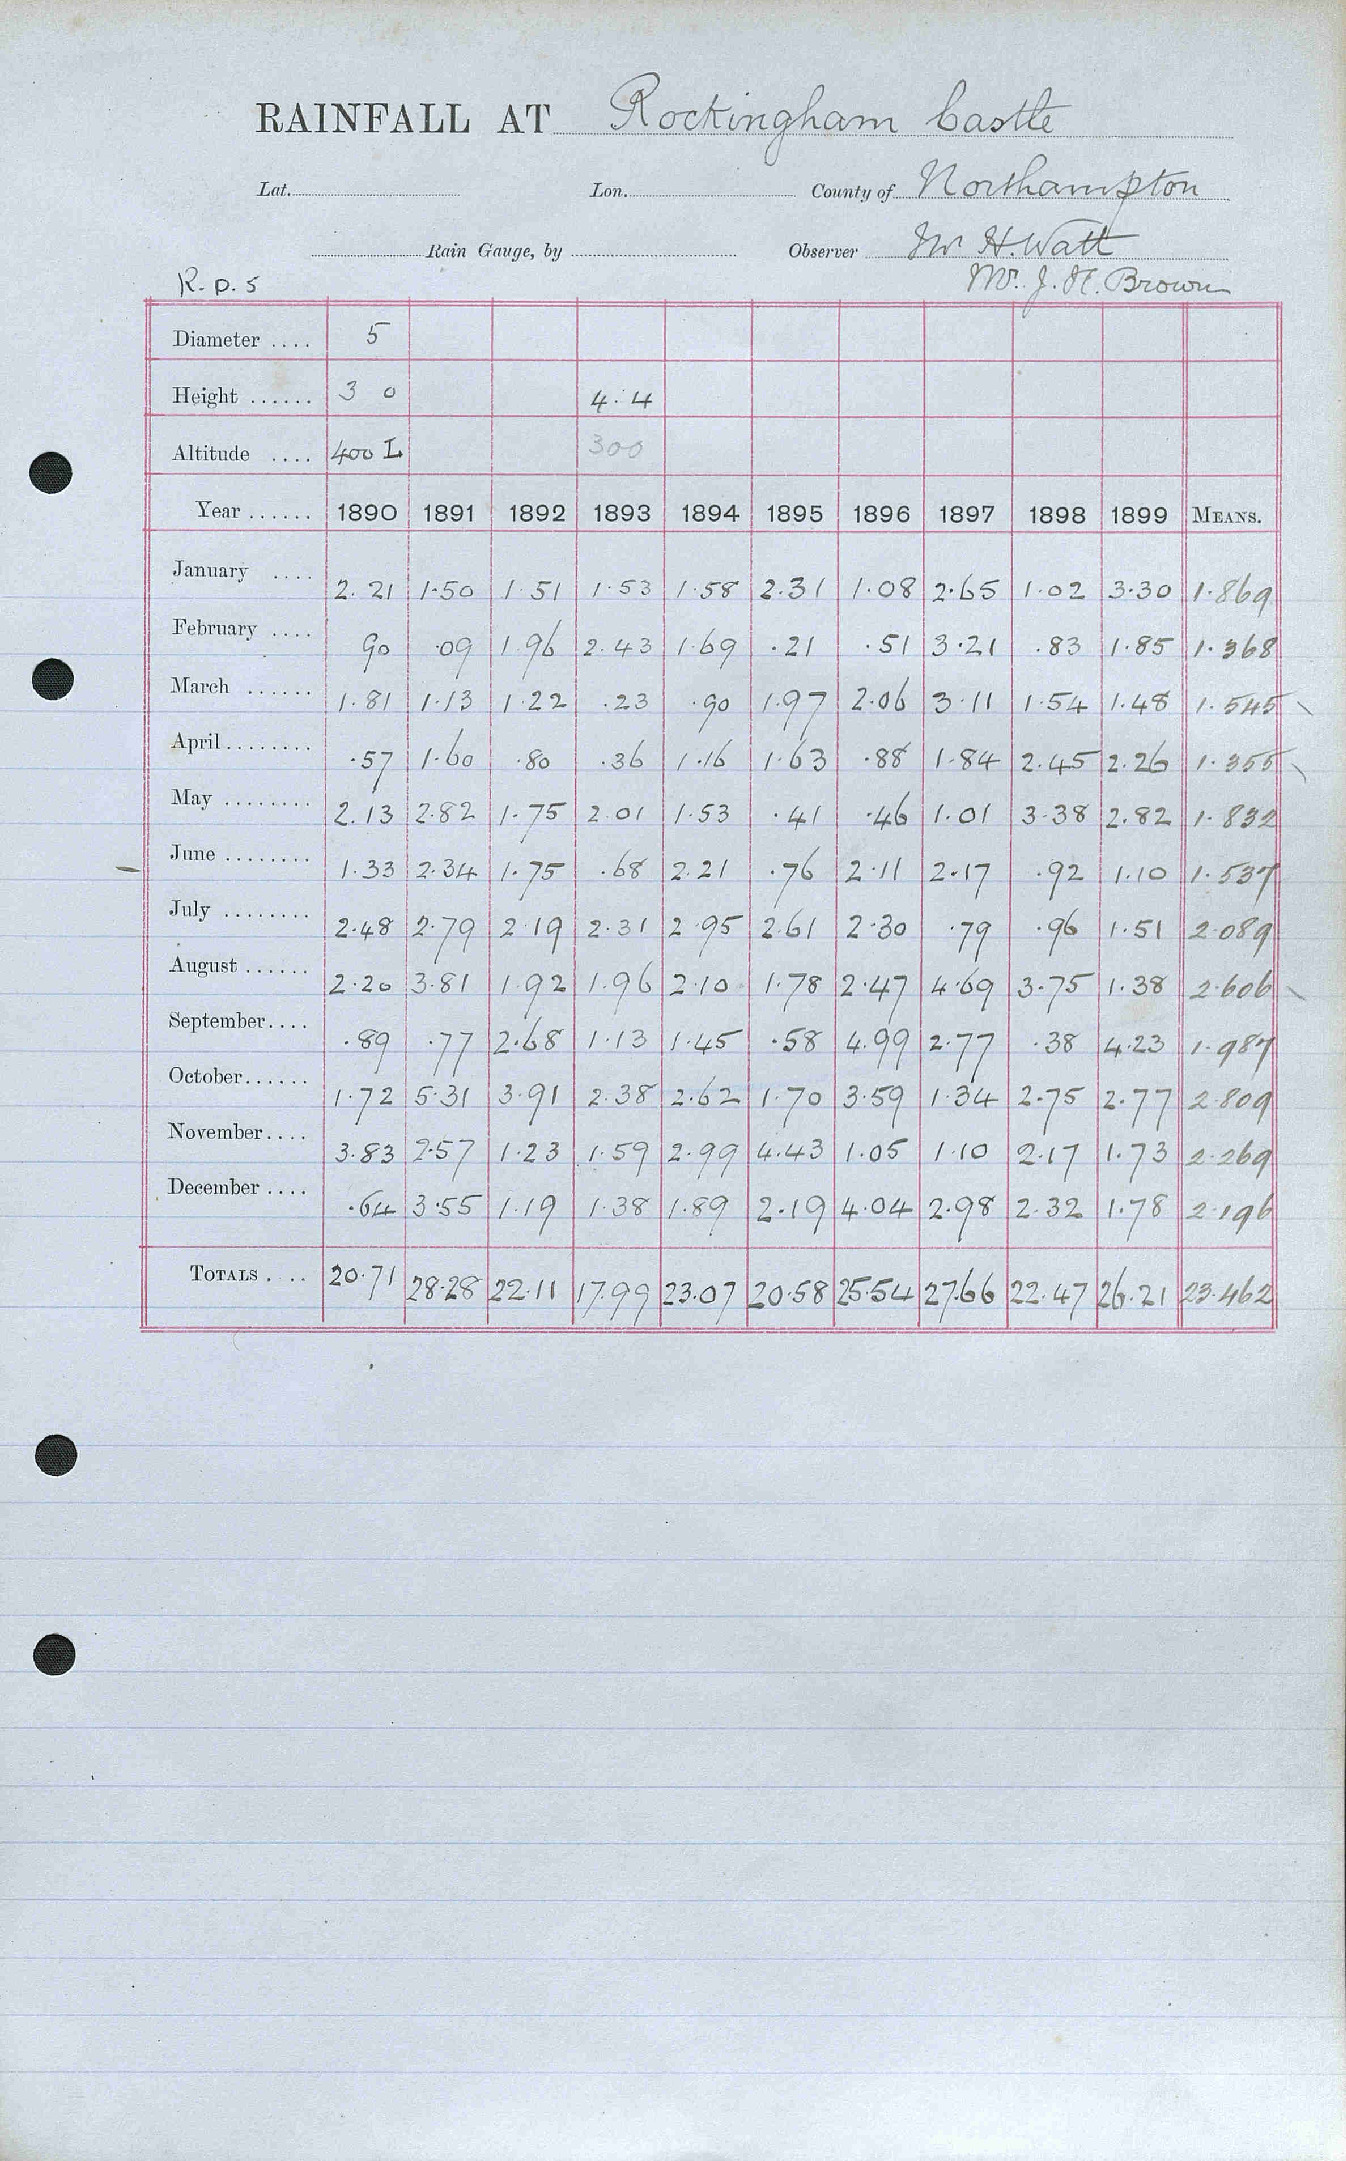 RAINFALL AT Rockingham Castle
Lat. Lon. County of Northampton
Rain Gauge, by Observer Mr H. Watt
R. P. S Mr. J. H. Brown
Diameter .... 5
Height ...... 3 0 4. 4
Altitude .... 400 L 300
Year ...... 1890 1891 1892 1893 1894 1895 1896 1897 1898 1899 MEANS.
January .... 2.21 1.50 1.51 1.53 1.58 2.31 1.08 2.65 1.02 3.30 1.869
February .... 90 .09 1.96 2.43 1.69 .21 .51 3.21 .83 1.85 1.368
March ...... 1.81 1.13 1.22 .23 .90 1.97 2.06 3.11 1.54 1.48 1.545
April ........ .57 1.60 .80 .36 1.16 1.63 .88 1.84 2.45 2.26 1.355
May ........ 2.13 2.82 1.75 2.01 1.53 .41 .46 1.01 3.38 2.82 1.832
June ........ 1.33 2.34 1.75 .68 2.21 .76 2.11 2.17 .92 1.10 1.537
July ........ 2.48 2.79 2.19 2.31 2.95 2.61 2.30 .79 .96 1.51 2.089
August ...... 2.20 3.81 1.92 1.96 2.10 1.78 2.47 4.69 3.75 1.38 2.606
September.... .89 .77 2.68 1.13 1.45 .58 4.99 2.77 .38 4.23 1.987
October...... 1.72 5.31 3.91 2.38 2.62 1.70 3.59 1.34 2.75 2.77 2.809
November.... 3.83 2.57 1.23 1.59 2.99 4.43 1.05 1.10 2.17 1.73 2.269
December .... .64 3.55 1.19 1.38 1.89 2.19 4.04 2.98 2.32 1.78 2.196
TOTALS .... 20.71 28.28 22.11 17.99 23.07 20.58 25.54 27.66 22.47 26.21 23.462